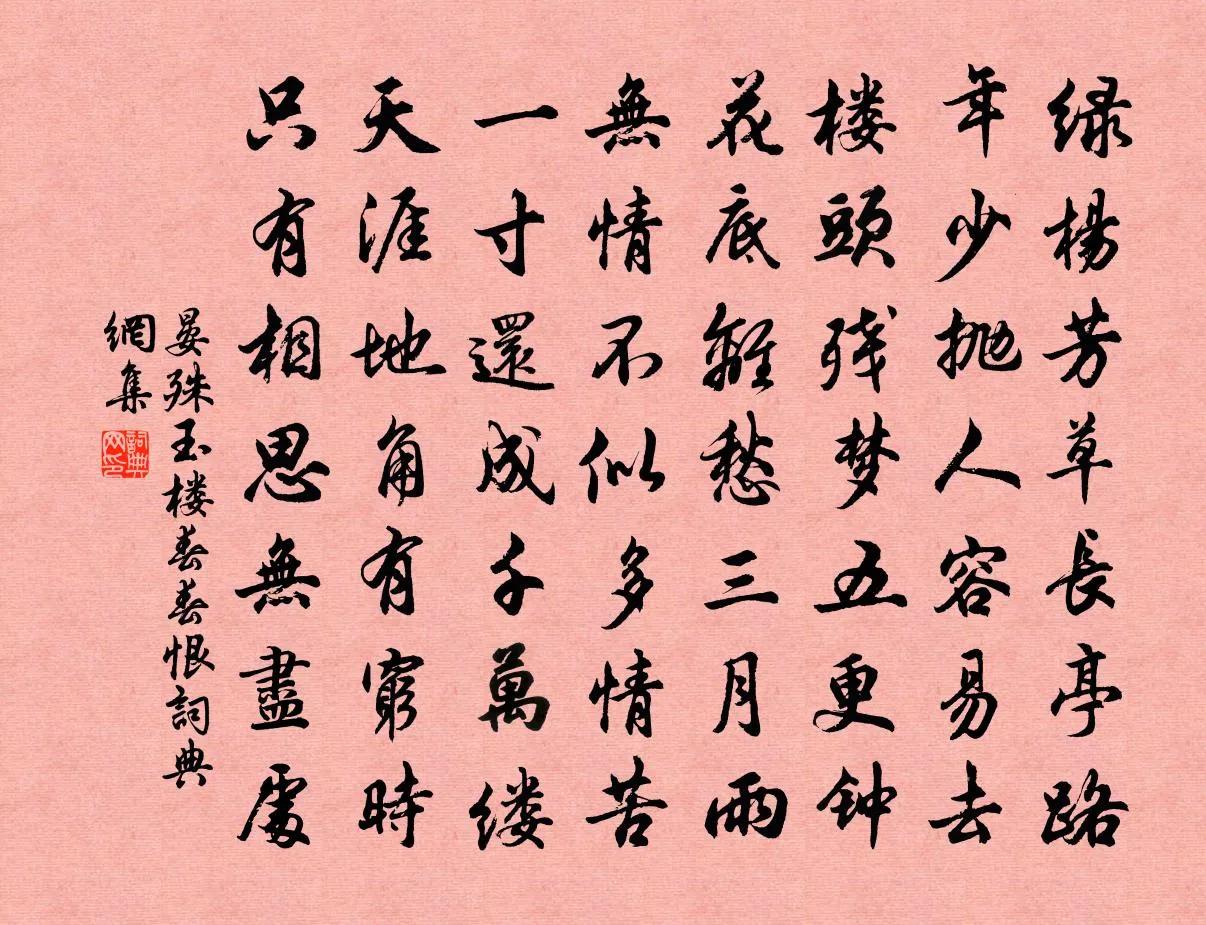 绿楊芳草長亭路
年少抛人容易去
楼頭残梦五更钟
花底離愁三月雨
無情不似多情苦
一寸還成千萬缕
天涯地角有窮時
只有相思無盡處
晏殊玉楼春春恨詞典
網集
詞典
网印